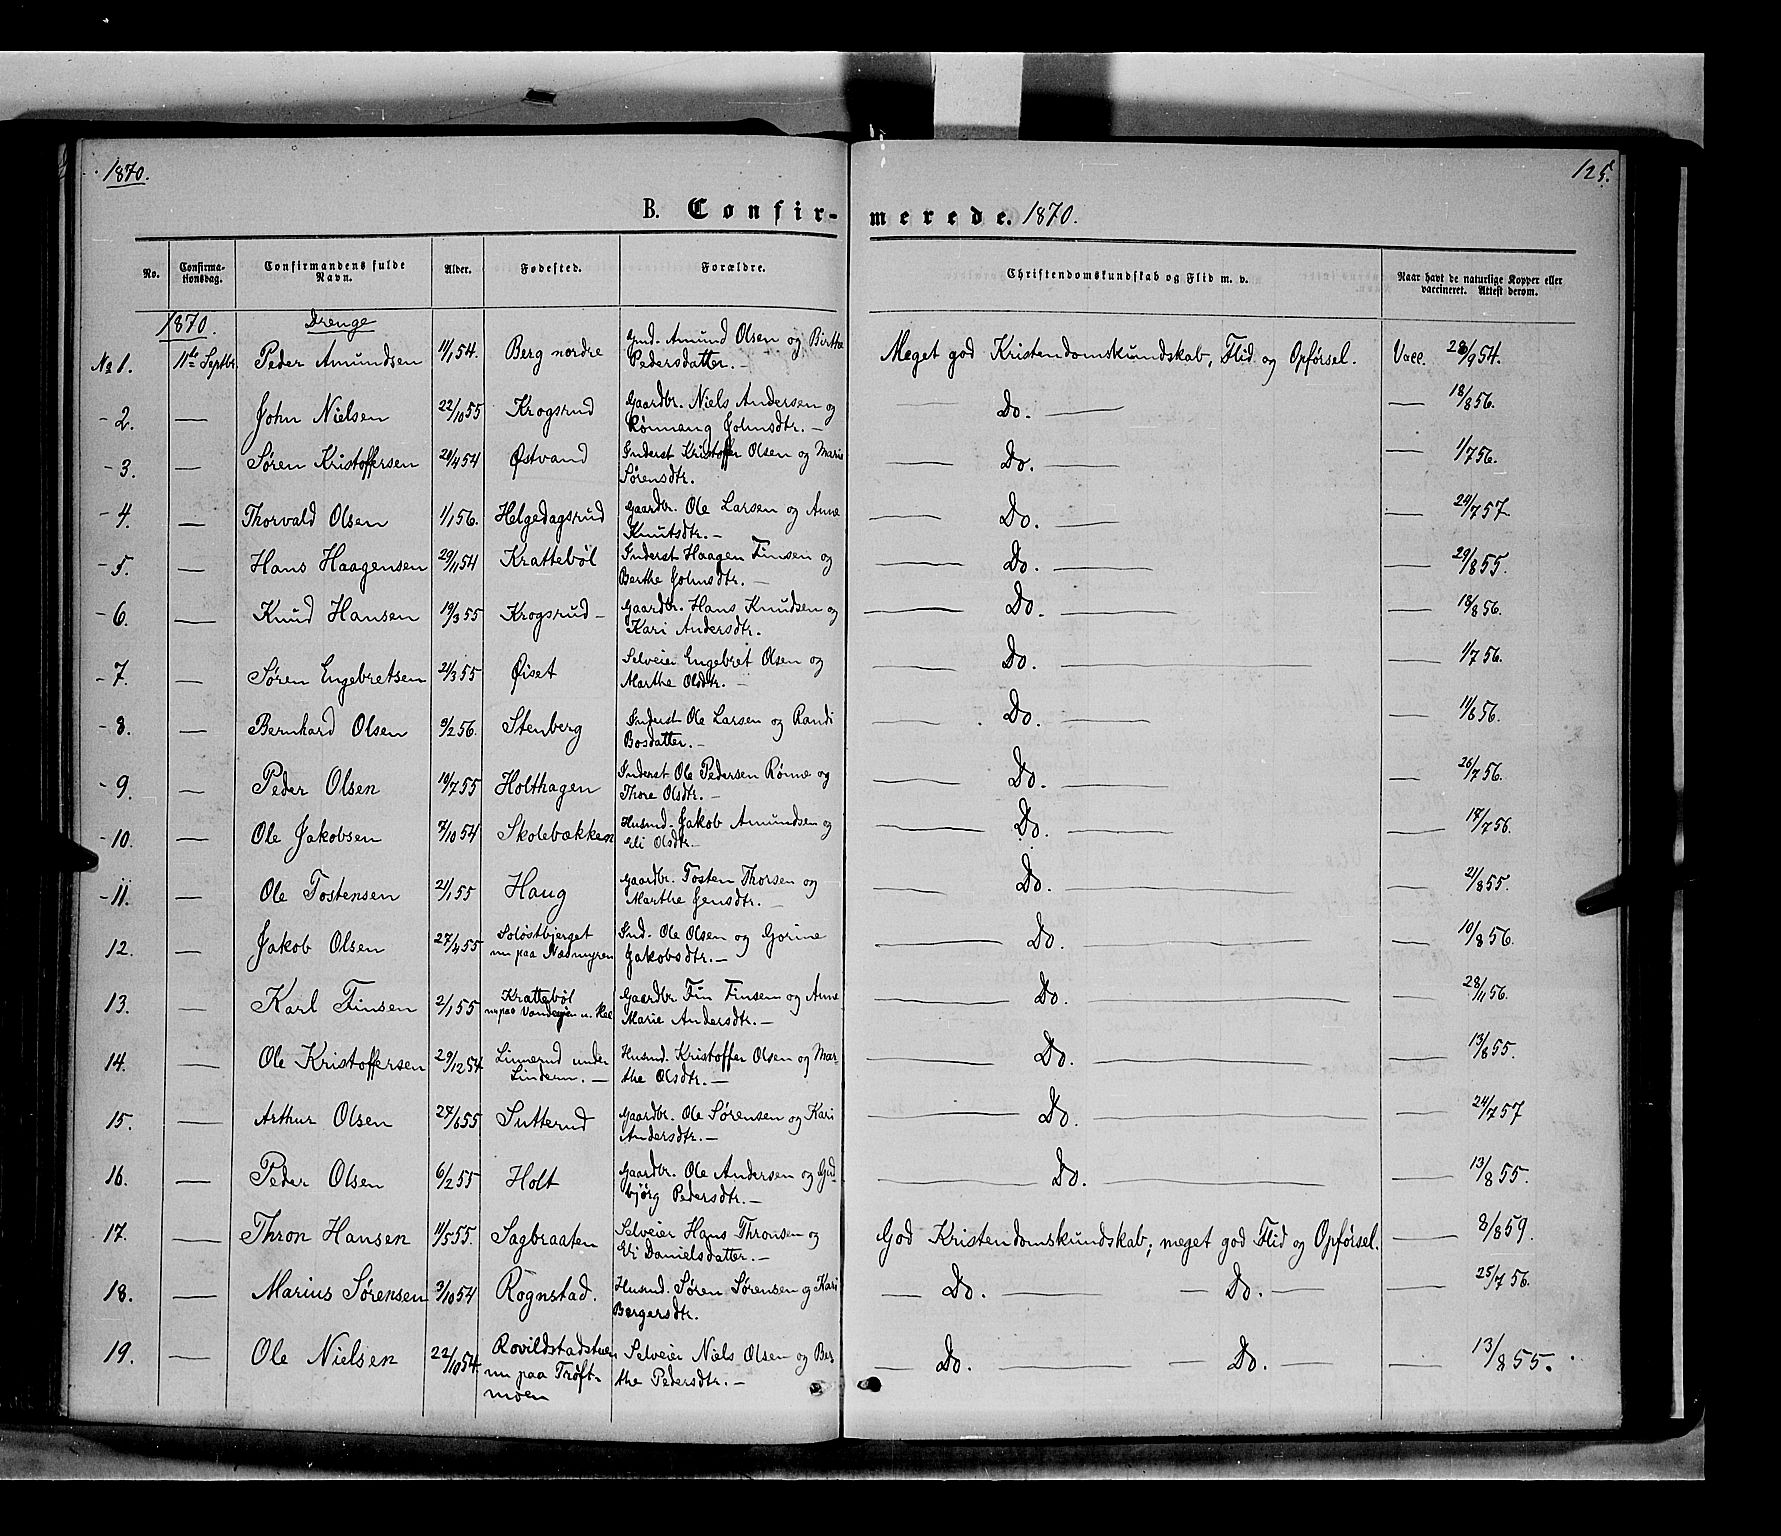 1870.
125.
B. Confirmerede. 1870.
No.
Confirmationsdag.
Confirmandens fulde Navn.
Alder.
Fødested.
Forældre.
Christendomskundskab og Flid m. v.
Naar havt de naturlige Kopper eller vaccineret. Attest derom.
1870. Drenge
No 1. 11te Septbr. Peder Amundsen 11/1 54. Berg nordre Amund Olsen og Birthe Pedersdatter. – Meget god Kristendomskundskab, Flid og Opførsel. Vacc. 28/9 54.
- 2. — John Nielsen 22/10 55 Krogsrud Gaardbr. Niels Andersen og Rønnaug Johnsdtr. – Do. — 18/8 56.
- 3. — Søren Kristoffersen 20/4 54 Østvand Inderst Kristoffer Olsen og Marie Sørensdtr. — Do. — 1/7 56.
- 4. — Thorvald Olsen 1/1 56. Helgedagsrud Gaardbr. Ole Larsen og Anne Knutsdtr. – Do. — 24/7 57.
- 5. — Hans Haagensen 29/11 54 Krattebøl Inderst Haagen Finsen og Berthe Johnsdtr. – Do. — 29/8 55.
- 6. — Knud Hansen 19/3 55 Krogsrud – Gaardbr. Hans Knudsen og Kari Andersdtr. — Do. — 18/8 56.
- 7. — Søren Engebretsen 21/3 55 Øiset Selveier Engebret Olsen og Marthe Olsdtr. – Do. — 1/7 56.
- 8. — Bernhard Olsen 9/2 56. Stenberg Inderst Ole Larsen og Randi Bosdatter. – Do. — 11/8 56.
- 9. — Peder Olsen 10/7 55 Holthagen Inderst Ole Pedersen Rønne og Thore Olsdtr. – Do. — 26/7 56.
- 10. — Ole Jakobsen 7/10 54 Skolebækken Husmd. Jakob Amundsen og Eli Olsdtr. – Do. — 17/7 56.
- 11. — Ole Tostensen 21/1 55 Haug Gaardbr. Tosten Thorsen og Marthe Jensdtr. – Do. — 21/8 55.
12. — Jakob Olsen 27/4 55 nu paa Næsmyren Ind. Ole Olsen og Gorine Jakobsdtr. – Do. — 10/8 56.
13. — Karl Finsen 2/1 55 Krattebøl nu paa Gaardbr. Fin Finsen og Anne Marie Andersdtr. – Do. — 28/11 56.
14. — Ole Kristoffersen 29/12 54 Linnerud under Lindern. – Husmd. Kristoffer Olsen og Marthe Olsdtr. – Do. — 13/8 55.
15. — Arthur Olsen 27/6 55 Sutterud Gaardbr. Ole Sørensen og Kari Andersdtr. – Do. — 24/7 57
16. — Peder Olsen 6/2 55 Holt Gaardbr. Ole Andersen og Gudbjørg Pedersdtr. – Do. — 13/8 55.
17. — Thron Hansen 11/5 55. Sagbraaten Selveier Hans Thronsen og Eli Danielsdatter. – God Kristendomskundskab; meget god Flid og Opførsel. — 8/8 59.
18. — Marius Sørensen 3/10 54 Rognstad. Husmd. Søren Sørensen og Kari Bergersdtr. — Do. — Do. — 25/7 56.
19. — Ole Nielsen 22/10 54 Rovildstadstuen nu paa Trøftmoen Selveier Niels Olsen og Berthe Pedersdtr. – Do. — Do. — 13/8 55.